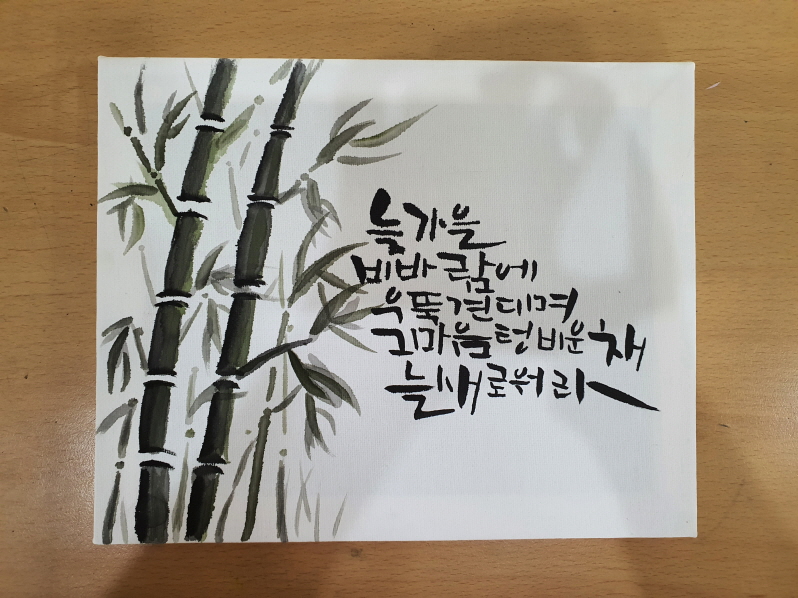 늦가을
비바람에
우뚝견디며
그마음텅비운채
늘새로워라